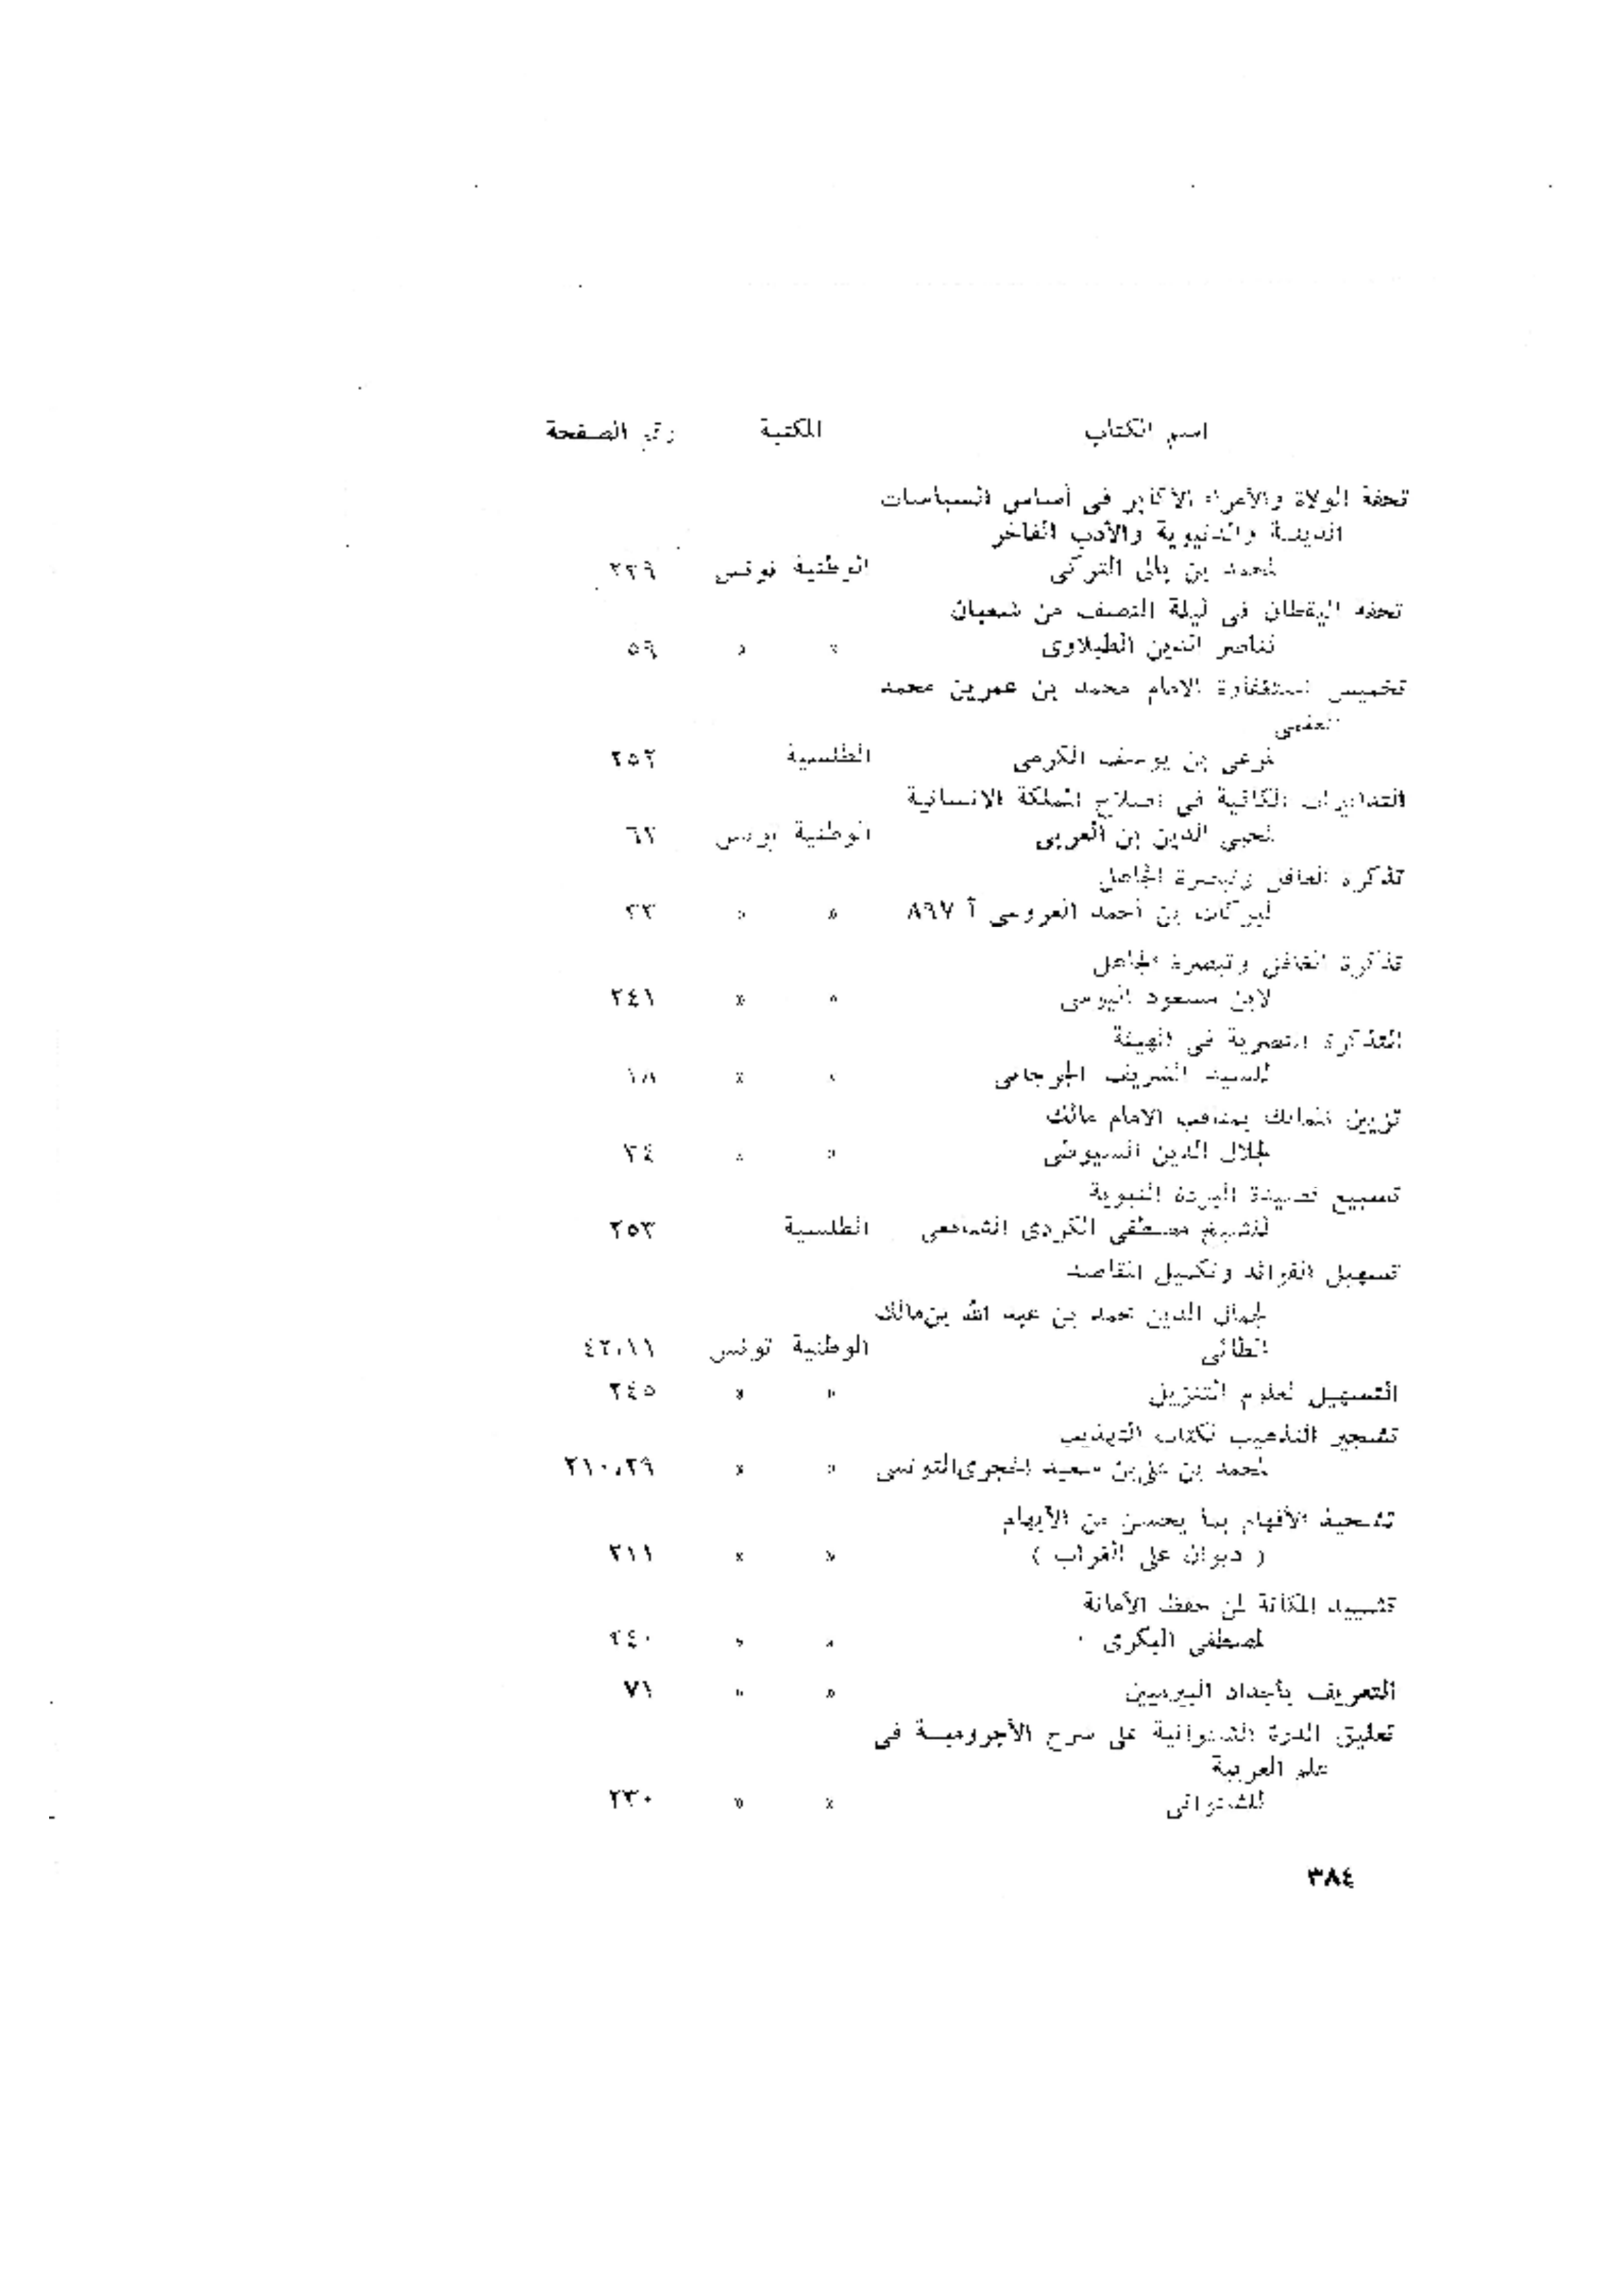 اسم الكتاب المكتبة رقم الصفحة
تحفة الولاة والأمراء الأكابر فى أساس السياسات
الدينية والدنيوية والأدب الفاخر
لمحمد بن بالى التركى الوطنية تونس ٢٣٩
تحفة اليقظان فى ليلة النصف من شعبان
لناصر الدين الطبلاوى » » ٥٩
تخميس استغفارة الامام محمد بن عمر بن محمد
لمرعى بن يوسف الكرمى الطلسية ٢٥٢
التدابيرات الكافية فى اصلاح المملكة الانسانية
لمحيى الدين بن العربى الوطنية تونس ٦٢
تذكرة الغافل وتبصرة الجاهل
لبركات بن أحمد العروسى أ ٨٩٧ » »
تذكرة الغافل وتبصرة الجاهل
لابن مسعود » » ٢٤١
التذكرة النصرية فى الهيئة
للسيد الشريف الجرجانى » »
تزيين الممالك بمناقب الامام مالك
لجلال الدين السيوطى » »
تسبيع قصيدة البردة النبوية
للشيخ مصطفى الكردى الشافعى الطلسية ٢٥٣
تسهيل الفوائد وتكميل المقاصد
لجمال الدين محمد بن عبد الله بن مالك
الطائى الوطنية تونس ٤٢،١١
التسهيل لعلوم التنزيل » » ٢٤٥
تشجير التذهيب لكتاب التهذيب
لمحمد بن على بن سعيد الحجرى التونسى » » ٢١٠،٢٩
تشحيذ الأفهام بما يحسن من الأيهام
( ديوان على الغراب ) » » ٢١١
تشييد المكانة لمن حفظ الأمانة
لمصطفى البكرى » » ٢٤٠
التعريف بأجداد البيرميين » » ٧١
تعليق الدرة الشنوانية على شرح الأجرومية فى
علم العربية
للشنوانى » » ٢٣٠
٣٨٤